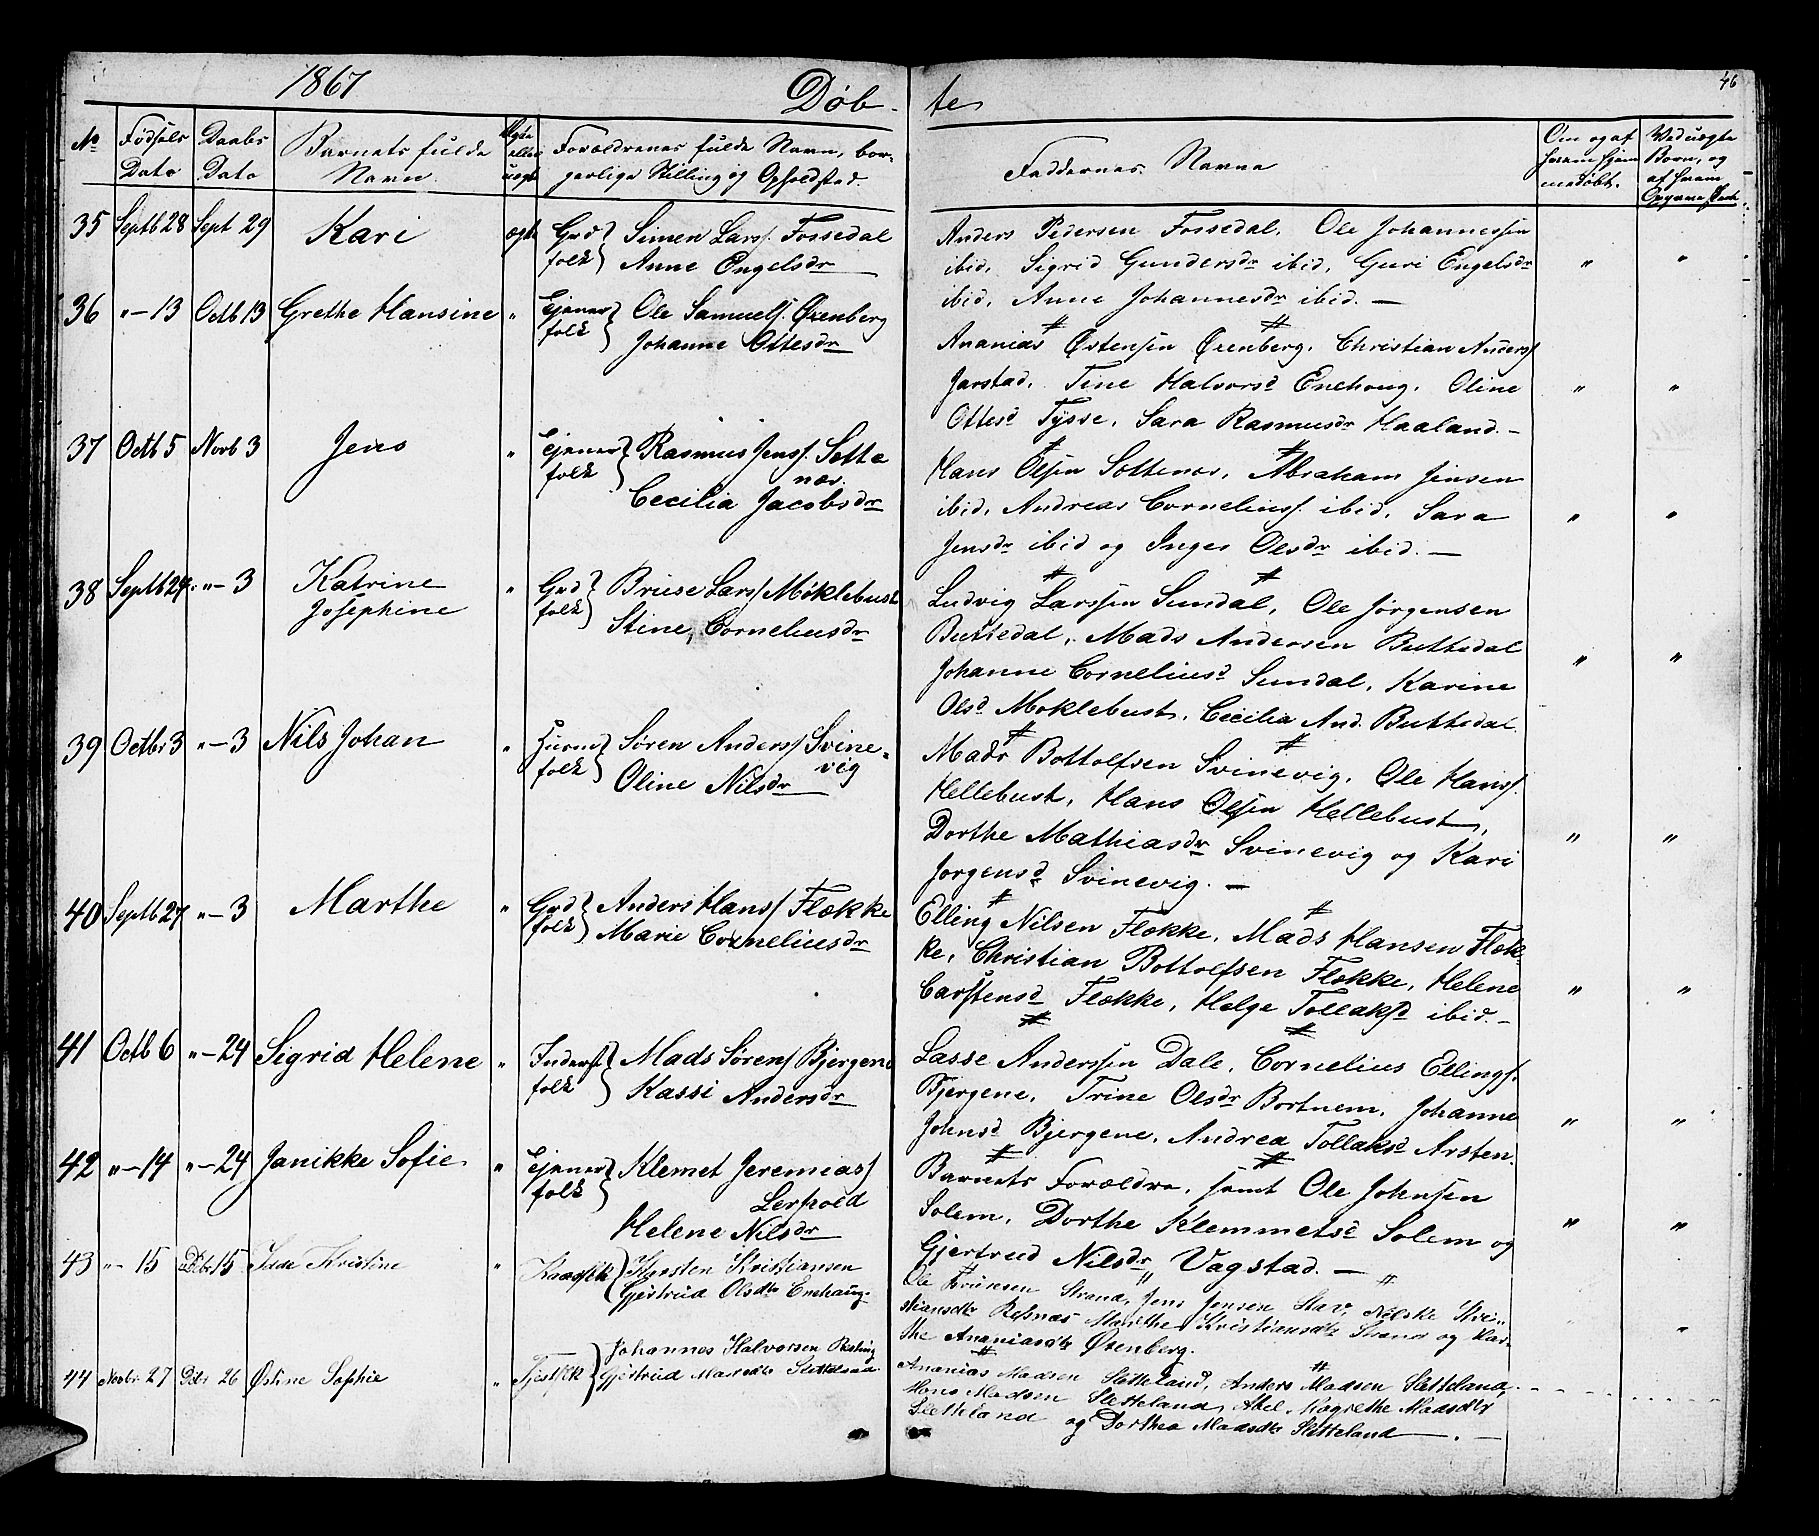 1867 Døb- te 46
No Fødsels Dato Daabs Dato Barnets fulde Navn Ægte eller uægte Forældrenes fulde Navn, bor-
gerlige Stilling og Opholdsted. Faddernes Navne
35 Septb 28 Sept 29 Kari ægte Grd folk Simen Larss. Fossedal
Anne Engelsdr
Anders Pedersen Fossedal, Ole Johannessen
ibid, Sigrid Gundersdr ibid, Guri Engelsdr " "
ibid, Anne Johannesdr ibid. —
36 "-13 Octb 13 Grethe Hansine " Ejener folk Ole Samuels. Øxenberg
Johanne Ottesdr
Ananias Østensen Øxenberg, Christian Anderss
Jarstad, Tine Halvorsd Enehoug, Oline " "
Ottesd Tysse, Sara Rasmusdr Haaland. —
37 Octb 5 Novb 3 Jens " Ejener folk Rasmus Jenss. Sotte
nær.
Cecilia Jacobsdr
Hans Olsen Sottenær, Abraham Jensen
ibid, Andreas Corneliuss. ibid, Sara " "
Jensdr ibid og Inger Olsdr ibid. —
38 Septb 29 "-3 Katrine Josephine " Grd folk Bruse Larss Møklebust
Stine, Corneliusdr
Ludvig Larssen Sundal, Ole Jørgensen
Buttedal, Mads Andersen Buttedal
Johanne Corneliusd Sundal, Karine " "
Olsd Moklebust, Cecilia And. Buttedal
39 Octbr 3 "-3 Nils Johan " Huusmd folk Søren Anderss Svine-
vig
Oline Nilsdr
Mads Bottolfsen Svinevig, Ole Hanss.
Hellebust, Hans Olsen Hellebust,
Dorthe Mathiasdr Svinevig og Kari " "
Jorgensd Svinevig. —
40 Septb 27 "-3 Marthe " Grd folk Anders Hanss Flække
Marie Corneliusdr
Elling Nilsen Flokke, Mads Hansen Flæk-
ke, Christian Bottolfsen Flække, Helene
Carstensd Flokke, Helge Tollaksd ibid. — " "
41 Octb 6 "-24 Sigrid Helene " Inderst folk Mads Sørens Bjergene
Kassi Andersdr
Lasse Anderssen Dale, Cornelius Ellings.
Bjergene, Trine Olsdr Bortnem, Johanne
Johnsd Bjergene, Andrea Tollaksd Arsten. " "
42 "-14 "-24 Janikke Sofie " Ejener folk Klemet Jeremias/
Lerfvoed
Helene Nilsdr
Barnets Forældre, samt Ole Johnsen
Solem, Dorthe Klemmetsd Solem og " "
Gjertrud Nilsdr Vagstad. —
43 "-15 Dcbr 15 Kristine " Karsten Kristiansen
Gjertrud Olsdtr Enehaug-
Ole Strand, Jens Jensen Stav, Kris-
tiansdtr Risnæs Marthe Kristiansdtr Strand og Mar-
the Ananiasdtr Øxenberg. "
44 Novbr 27 Dcbr 26 Østine Sophie " Johannes Halvorsen
Gjertrud Madsdtr Sletteland
Ananias Madsen Sletteland, Anders Madsen Sletteland,
Hans Madsen Sletteland, Madsdtr
Sletteland og Dorthea Madsdtr Sletteland